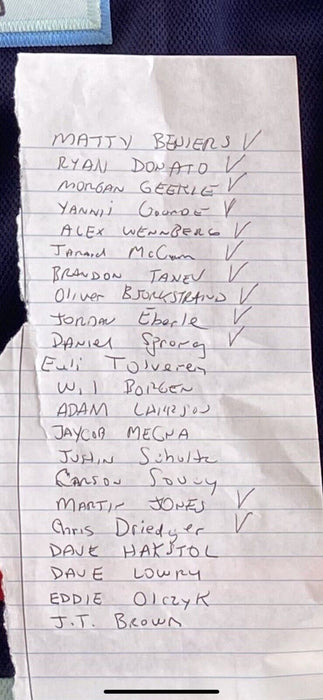 MATTY BENIERS ✓
RYAN DONATO ✓
MORGAN GEEKIE ✓
YANNI GOURDE ✓
ALEX WENNBERG ✓
Jarred McCann ✓
BRANDON TANEV ✓
Oliver BJORKSTRAND ✓
Jordan Eberle ✓
DANIEL Sprong ✓
Eeli Tolvanen
Will BORGEN
ADAM LARSSON
JAYCOB MEGNA
Justin Schultz
Carson Soucy
MARTIN JONES ✓
Chris Driedger ✓
DAVE HAKSTOL
DAVE LOWRY
EDDIE Olczyk
J.T. Brown